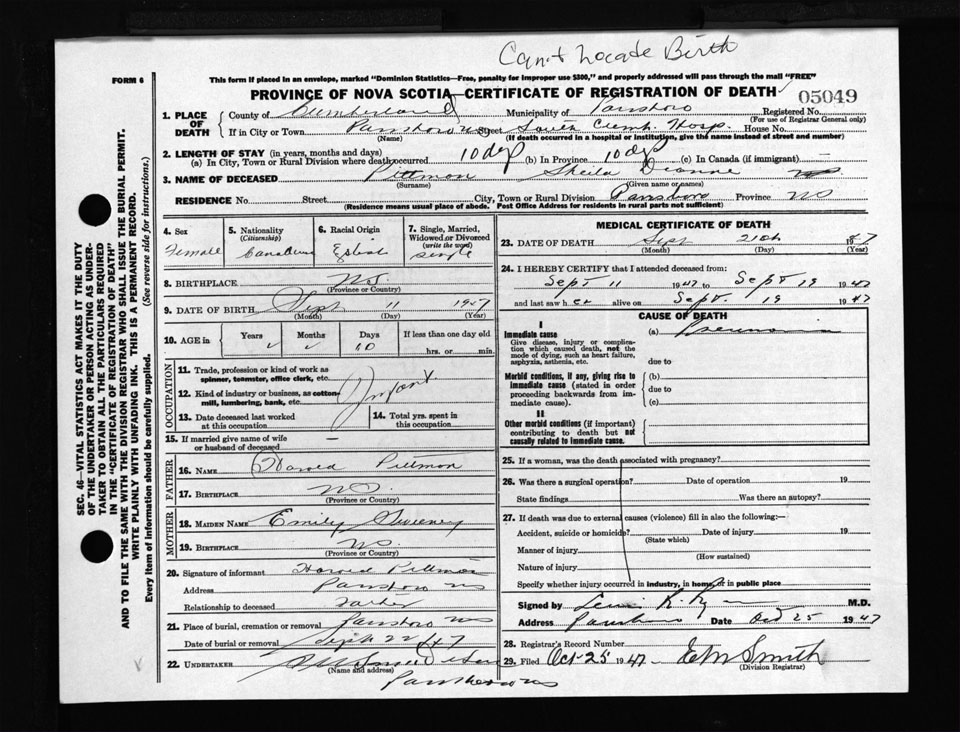 Can't Locate Birth
FORM 6
This form if placed in an envelope, marked "Dominion Statistics—Free, penalty for improper use $300," and properly addressed will pass through the mail "FREE"
PROVINCE OF NOVA SCOTIA—CERTIFICATE OF REGISTRATION OF DEATH
05049
1. PLACE OF DEATH
County of Cumberland Municipality of Parrsboro Registered No.
(For use of Registrar General only)
If in City or Town Parrsboro NS Street South Cumb. Hosp House No.
(Name) (If death occurred in a hospital or institution, give the name instead of street and number)
2. LENGTH OF STAY (in years, months and days)
(a) In City, Town or Rural Division where death occurred 10 dys (b) In Province 10 dys (c) In Canada (if immigrant) —
3. NAME OF DECEASED Pittmon Sheila Dianne
(Surname) (Given name or names)
RESIDENCE No. Street City, Town or Rural Division Parrsboro Province NS
(Residence means usual place of abode. Post Office Address for residents in rural parts not sufficient)
4. Sex Female
5. Nationality (Citizenship) Canadian
6. Racial Origin English
7. Single, Married, Widowed or Divorced (write the word) Single
8. BIRTHPLACE N.S.
(Province or Country)
9. DATE OF BIRTH Sept 11 1947
(Month) (Day) (Year)
10. AGE in Years Months Days 10 If less than one day old
hrs. or min.
OCCUPATION
11. Trade, profession or kind of work as spinner, teamster, office clerk, etc.
12. Kind of industry or business, as cotton mill, lumbering, bank, etc. Infant
13. Date deceased last worked at this occupation
14. Total yrs. spent in this occupation
15. If married give name of wife or husband of deceased —
FATHER
16. NAME Harold Pittmon
17. BIRTHPLACE N.S.
(Province or Country)
MOTHER
18. MAIDEN NAME Emily Sweeney
19. BIRTHPLACE NS.
(Province or Country)
20. Signature of informant Harold Pittmon
Address Parrsboro NS
Relationship to deceased Father
21. Place of burial, cremation or removal Parrsboro NS
Date of burial or removal Sept 22/47
22. UNDERTAKER
(Name and address)
Parrsboro NS
MEDICAL CERTIFICATE OF DEATH
23. DATE OF DEATH Sept 21st 1947
(Month) (Day) (Year)
24. I HEREBY CERTIFY that I attended deceased from:
Sept 11 1947 to Sept 19 1947
and last saw her alive on Sept. 19 1947
CAUSE OF DEATH
I
Immediate cause
Give disease, injury or complication which caused death, not the mode of dying, such as heart failure, asphyxia, asthenia, etc.
(a) Pneumonia
due to
Morbid conditions, if any, giving rise to immediate cause (stated in order proceeding backwards from immediate cause).
(b)
due to
(c)
II
Other morbid conditions (if important) contributing to death but not causally related to immediate cause.
25. If a woman, was the death associated with pregnancy?
26. Was there a surgical operation? Date of operation 19
State findings Was there an autopsy?
27. If death was due to external causes (violence) fill in also the following:—
Accident, suicide or homicide? Date of injury 19
(State which)
Manner of injury
(How sustained)
Nature of injury
Specify whether injury occurred in industry, in home, or in public place
Signed by M.D.
Address Parrsboro Date Oct 25 1947
28. Registrar's Record Number
29. Filed Oct-25 1947 E M Smith
(Division Registrar)
SEC. 46—VITAL STATISTICS ACT MAKES IT THE DUTY
OF THE UNDERTAKER OR PERSON ACTING AS UNDERTAKER TO OBTAIN ALL THE PARTICULARS REQUIRED
IN THE "CERTIFICATE OF REGISTRATION OF DEATH"
AND TO FILE THE SAME WITH THE DIVISION REGISTRAR WHO SHALL ISSUE THE BURIAL PERMIT.
WRITE PLAINLY WITH UNFADING INK. THIS IS A PERMANENT RECORD.
Every item of information should be carefully supplied. (See reverse side for instructions.)